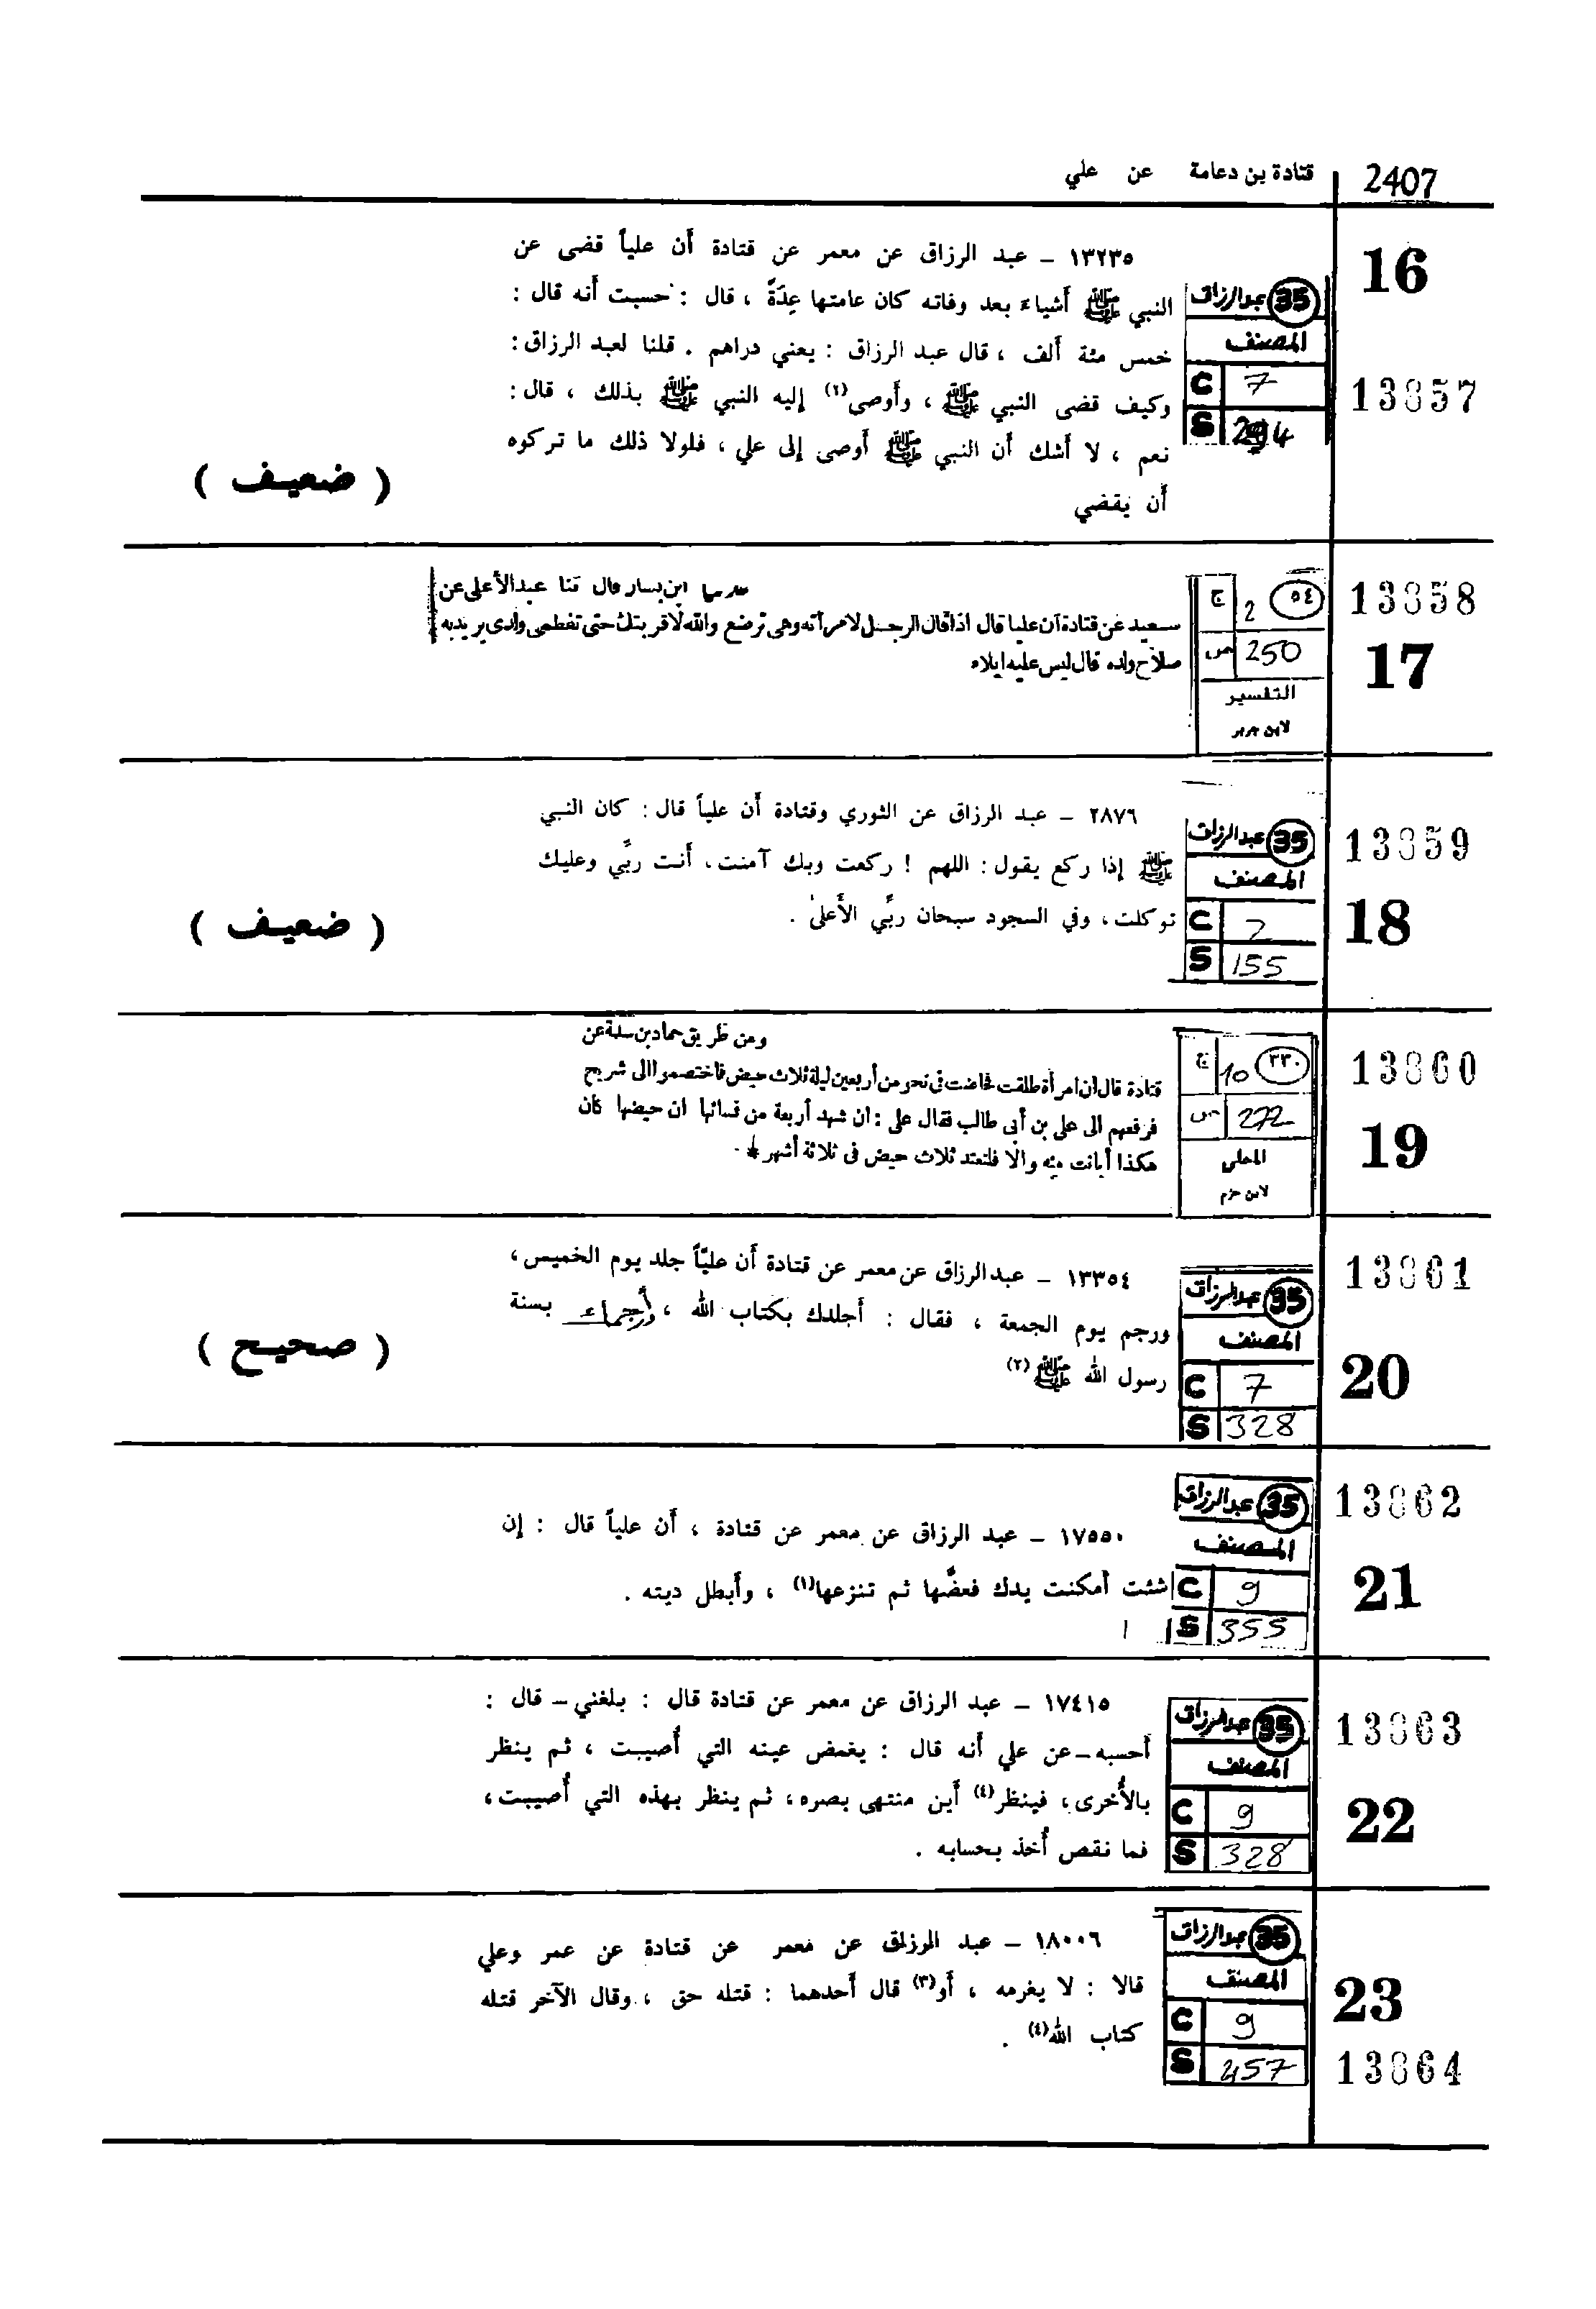 2407
قتادة بن دعامة عن علي
16
13857
35 عبدالرزاق
المصنف
C 7
S 294
١٣٢٣٥ – عبد الرزاق عن معمر عن قتادة أن علياً قضى عن
النبي ﷺ أشياء بعد وفاته كان عامتها عِدَةً ، قال : حسبت أنه قال :
خمس مئة ألف ، قال عبد الرزاق : يعني دراهم . قلنا لعبد الرزاق :
وكيف قضى النبي ﷺ ، وأوصى(٢) إليه النبي ﷺ بذلك ، قال :
نعم ، لا أشك أن النبي ﷺ أوصى إلى علي ، فلولا ذلك ما تركوه
أن يقضي
( ضعيف )
13858
17
٥٤ ج 2
ص 250
التفسير
لابن جرير
ابن بسار قال ثنا عبدالأعلى عن
سعيد عن قتادة أن عليا قال اذا قال الرجل لامرأته وهى ترضع والله لا قربتك حتى تفطمى ولدى يريد به
صلاح ولده قال ليس عليه ايلاء
13859
18
35 عبدالرزاق
المصنف
C 2
S 155
٢٨٧٦ – عبد الرزاق عن الثوري وقتادة أن علياً قال : كان النبي
ﷺ إذا ركع يقول : اللهم ! ركعت وبك آمنت، أنت ربّي وعليك
توكلت، وفي السجود سبحان ربّي الأعلى .
( ضعيف )
13860
19
٣٣٠ ج 10
ص 272
المحلى
لابن حزم
ومن طريق حماد بن سلمة عن
قتادة قال ان امرأة طلقت فحاضت فى نحو من أربعين ليلة ثلاث حيض فاختصموا الى شريح
فرفعهم الى على بن أبى طالب فقال على : ان شهد أربعة من نسائها ان حيضها كان
هكذا أبانت منه والا فلتعتد ثلاث حيض فى ثلاثة أشهر
13861
20
35 عبدالرزاق
المصنف
C 7
S 328
١٣٣٥٤ – عبدالرزاق عن معمر عن قتادة أن عليّاً جلد يوم الخميس،
ورجم يوم الجمعة ، فقال : أجلدك بكتاب الله ، وأرجمك بسنة
رسول الله ﷺ(٢)
( صحيح )
13862
21
35 عبدالرزاق
المصنف
C 9
S 355
١٧٥٥٠ – عبد الرزاق عن معمر عن قتادة ، أن علياً قال : إن
شئت أمكنت يدك فعضَّها ثم تنزعها(١) ، وأبطل ديته .
13863
22
35 عبدالرزاق
المصنف
C 9
S 328
١٧٤١٥ – عبد الرزاق عن معمر عن قتادة قال : بلغني – قال :
أحسبه – عن علي أنه قال : يغمض عينه التي أُصيبت ، ثم ينظر
بالأُخرى، فينظر(٤) أين منتهى بصره، ثم ينظر بهذه التي أُصيبت،
فما نقص أُخذ بحسابه .
23
13864
35 عبدالرزاق
المصنف
C 9
S 457
١٨٠٠٦ – عبد الرزاق عن معمر عن قتادة عن عمر وعلي
قالا : لا يغرمه ، أو(٣) قال أحدهما : قتله حق ، وقال الآخر قتله
كتاب الله(٤) .